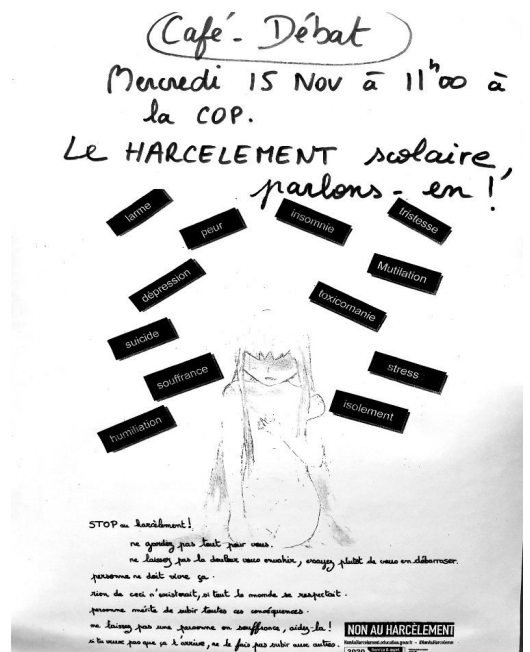 Café - Débat
Mercredi 15 Nov à 11h00 à
la COP.
Le HARCELEMENT scolaire,
parlons-en !
larme
peur
insomnie
tristesse
dépression
Mutilation
toxicomanie
suicide
souffrance
stress
isolement
humiliation
STOP au harcèlement !
ne gardez pas tout pour vous.
ne laissez pas la douleur vous envahir, essayez plutôt de vous en débarrasser.
personne ne doit vivre ça.
rien de ceci n'existerait, si tout le monde se respectait.
personne mérite de subir toutes ces conséquences.
ne laissez pas une personne en souffrance, aidez-la !
si tu veux pas que ça t'arrive, ne le fais pas subir aux autres.
NON AU HARCÈLEMENT
3020 Service & appel